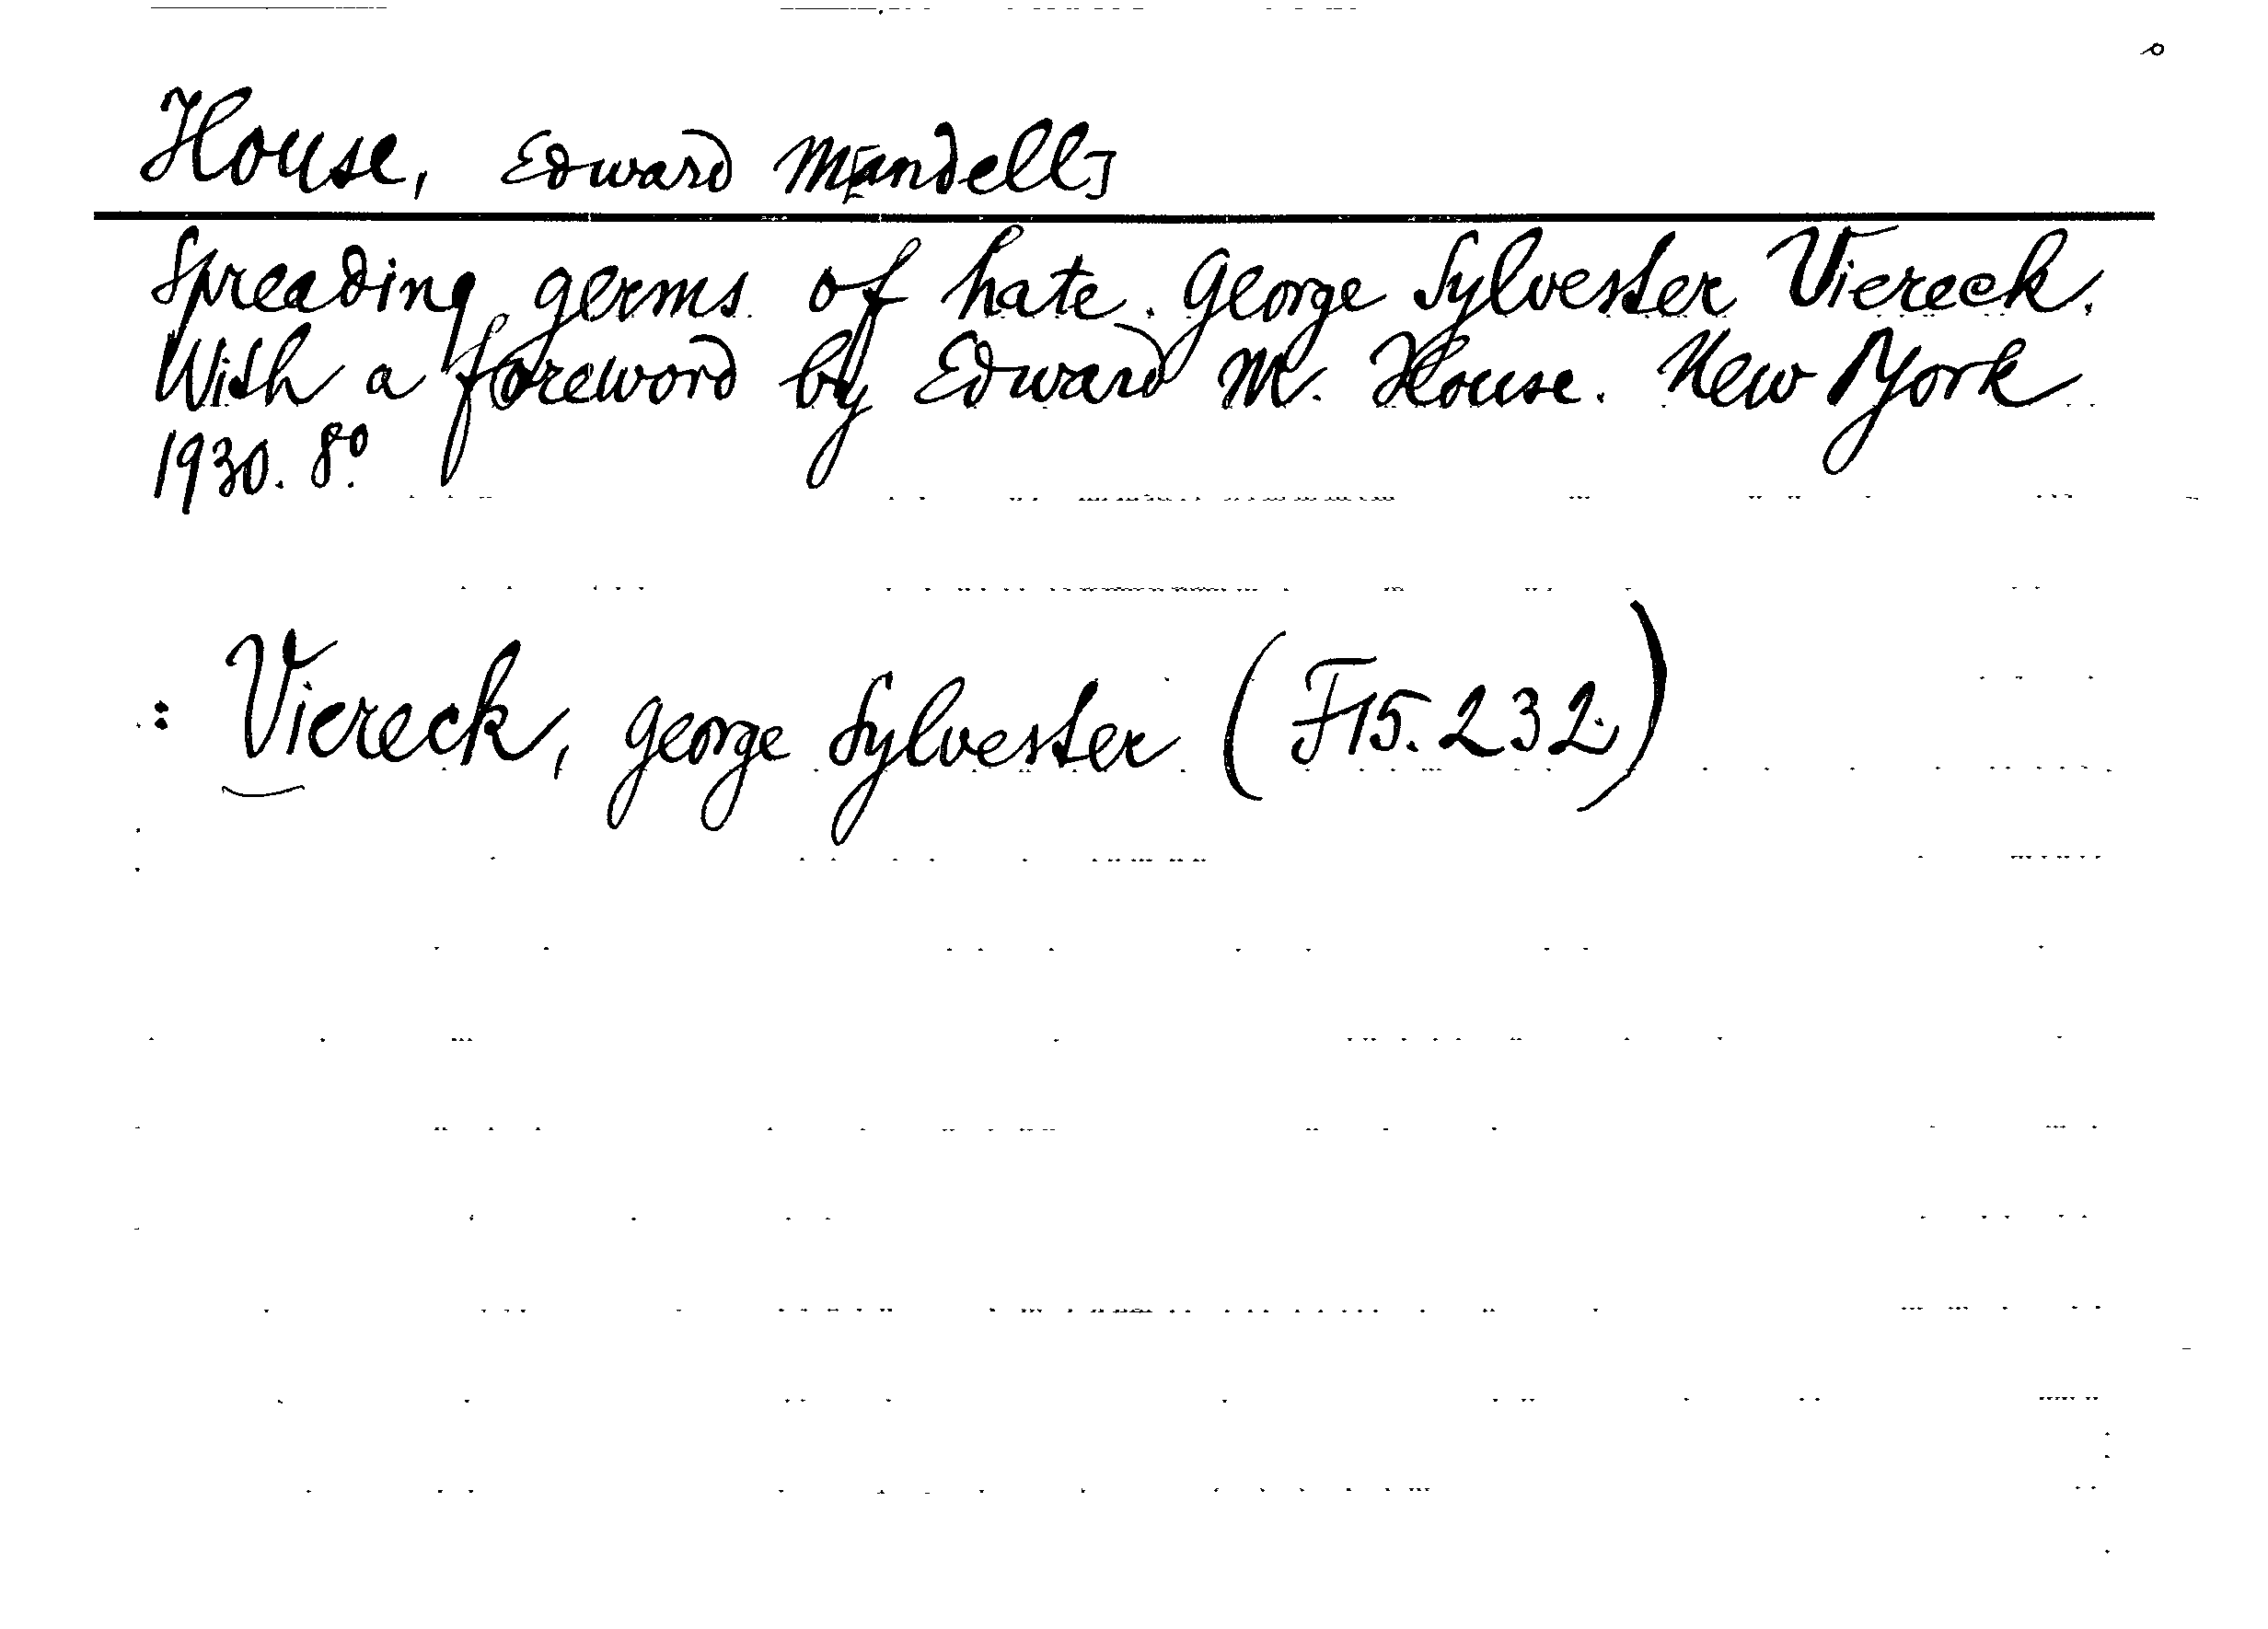 House, Edward M[andell]
Spreading germs of hate. George Sylvester Viereck.
With a foreword by Edward M. House. New York
1930. 8º.
: Viereck, George Sylvester (F15.232)